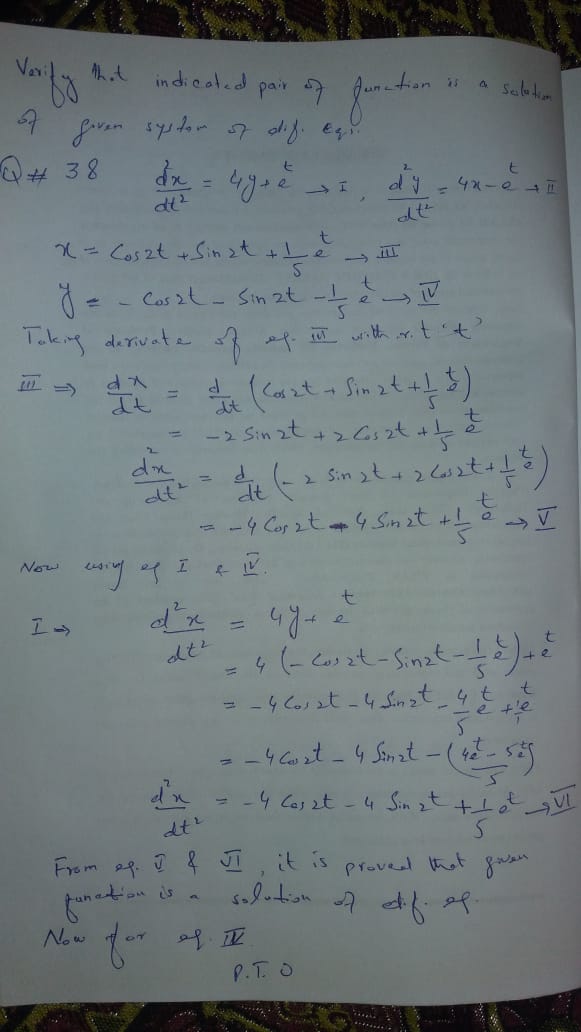 Verify that indicated pair of function is a solution
of given system of dif. eqs.
Q # 38 d²x/dt² = 4y + e^t → I, d²y/dt² = 4x - e^t → II
x = Cos2t + Sin2t + 1/5 e^t → III
y = - Cos2t - Sin2t - 1/5 e^t → IV
Taking derivate of eq. III with r. t 't'
III ⇒ dx/dt = d/dt (Cos2t + Sin2t + 1/5 e^t)
= -2 Sin2t + 2 Cos2t + 1/5 e^t
d²x/dt² = d/dt (-2 Sin2t + 2 Cos2t + 1/5 e^t)
= -4 Cos2t - 4 Sin2t + 1/5 e^t → V
Now using eq I & IV.
I ⇒ d²x/dt² = 4y + e^t
= 4 (- Cos2t - Sin2t - 1/5 e^t) + e^t
= -4 Cos2t - 4 Sin2t - 4/5 e^t + e^t
= -4 Cos2t - 4 Sin2t - (4e^t - 5e^t / 5)
d²x/dt² = -4 Cos2t - 4 Sin2t + 1/5 e^t → VI
From eq. V & VI, it is proved that given
function is a solution of dif. eq.
Now for eq. IV
P.T.O